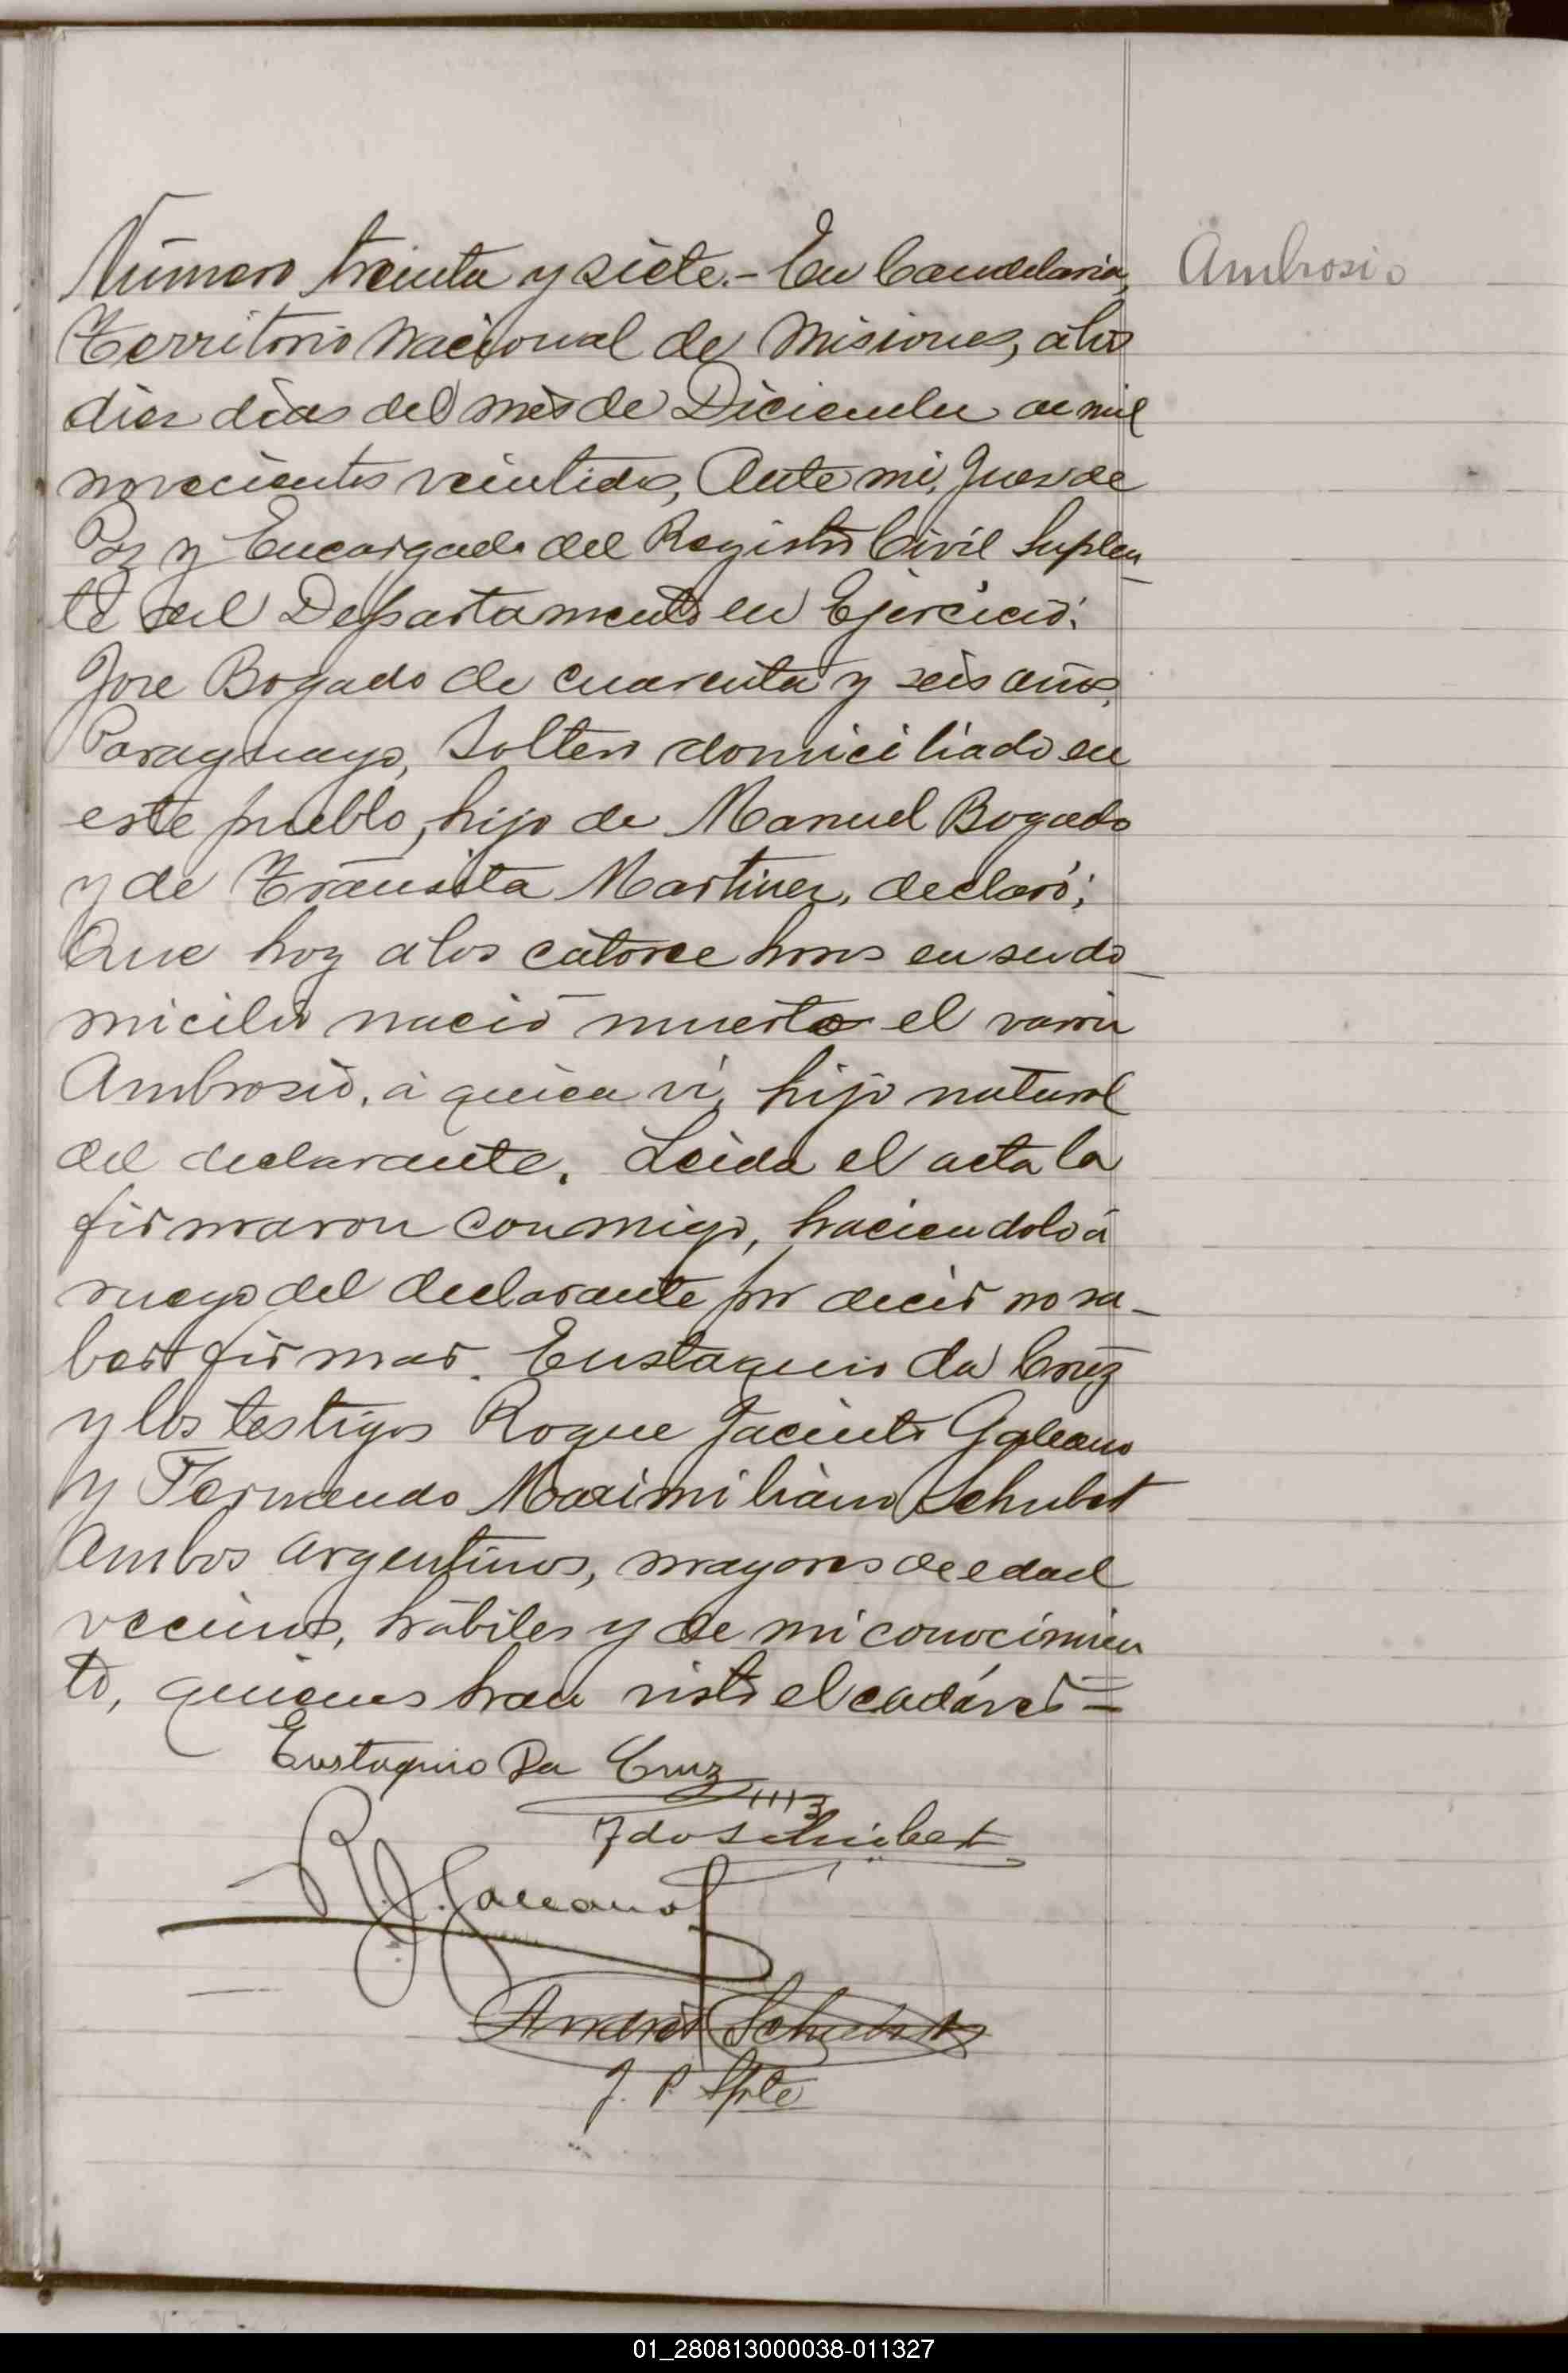 Número treinta y siete.- En Candelaria,
Ambrosio
Territorio Nacional de Misiones, á los
diez días del mes de Diciembre de mil
novecientos veintidos, Ante mi, Juez de
Paz y Encargado del Registro Civil Suplen-
te del Departamento en Ejercicio:
Jose Bogado de cuarenta y seis años,
Paraguayo, Soltero domiciliado en
este pueblo, hijo de Manuel Bogado
y de Tránsita Martinez, declaró;
Que hoy a las catorce horas en su do-
micilio nació muerto el varon
Ambrosio, á quien ví, hijo natural
del declarante. Leida el acta la
firmaron conmigo, haciendolo á
ruego del declarante por decir no sa-
ber firmar. Eustaquio da Cruz
y los testigos Roque Jacinto Galeano
y Fernando Maximiliano Schubert
Ambos argentinos, mayores de edad
vecinos, hábiles y de mi conocimien
to, quienes han visto el cadáver =
Eustaquio Da Cruz
Fdo Schubert
R. J. Galeano
Andrés
J. P. Splte
01_280813000038-011327